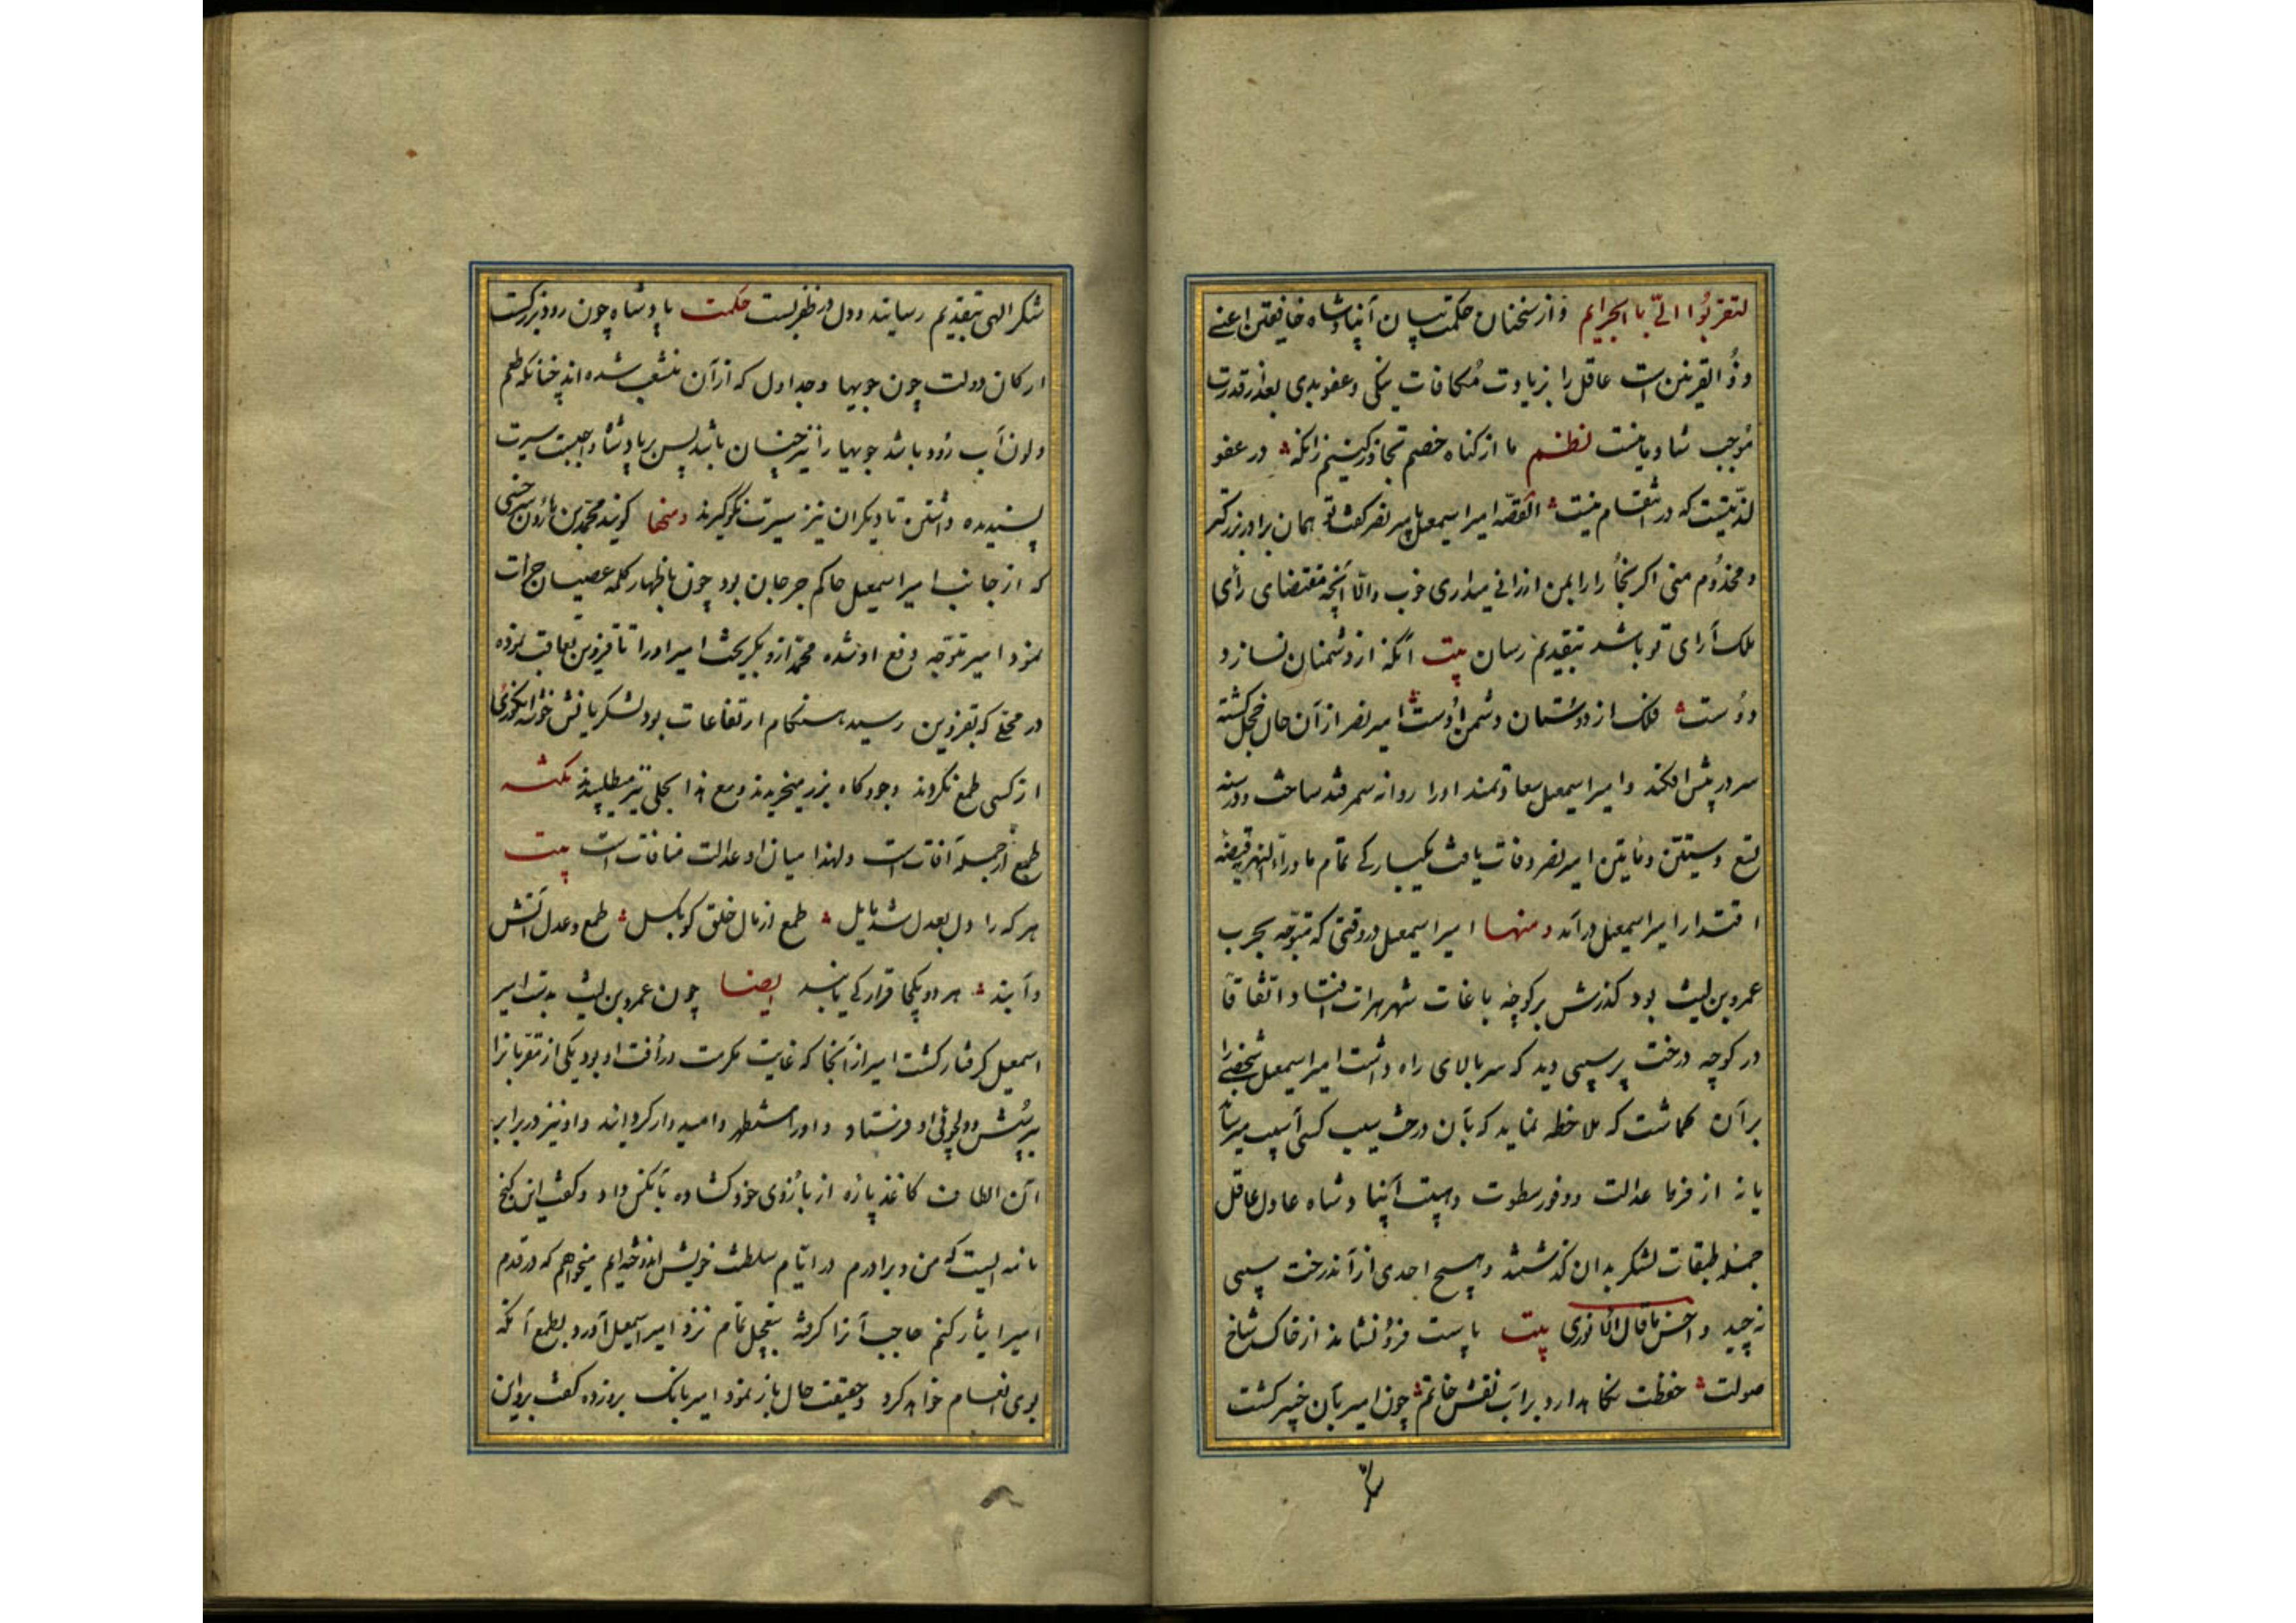 لتقربُوا الیّ با الجرایم و از سخنان حکمت بیان آن پادشاه خافقین اعنی
وذُو القرنین است عاقل را بزیادت مُکافات نیکی و عفو بدی بعد از قدرت
مُوجب شادمانیست نظم ما از کناه خصم تجاوز کنیم زانکه در عفو
لذّتیست که در انتقام نیست القصّه امیر اسمعیل با میر نصر کفت تو همان برادر بزرکتر
و مخدُوم منی اکر بُخارا را بمن ارزانی میداری خوب و الّا آنچه مقتضای رأی
ملک آرای تو باشد بتقدیم رسان بیت آنکه از دشمنان نسازد
دوُست فلک از دوستان دشمن اوُست امیر نصر از آن حال خجل کشته
سر در پیش افکند و امیر اسمعیل سعادتمند اورا روانه سمرقند ساخت و در سنه
تسع و سبعین و مایتین امیر نصر وفات یافت یکبارکی تمام ماوراء النهر بقبضه
اقتدار امیر اسمعیل در آمد و منهـا امیر اسمعیل در وقتی که متوجّه بحرب
عمرو بن لیث بود کذرش بر کوچهٔ باغات شهر هرات افتاد اتفاقاً
در کوچه درخت پر سیبی دید که سر بالای راه داشت امیر اسمعیل شخصی را
بر آن کماشت که ملاحظه نماید که بآن درخت سیب کسی آسیب میرساند
یا نه از فرط عدالت و وفور سطوت و هیبت آن پادشاه عادل عاقل
جمله طبقات لشکر بدان کذشتند و هیچ احدی از آن درخت سیبی
نچید و احسن ما قال الانوری بیت پاست فروُ نشاند از خاک شاخ
صولت حفظت نکاهدارد بر آب نقش خاتم چون امیر بآن خبیر کشت
شکر
شکر الهی بتقدیم رسانید و دل در ظفر بست حکمت پادشاه چون رود بزرکست
ارکان دولت چون جویها و جداول که از آن منشعب شده اند چنانکه طعم
و لون آب رود باشد جویها را نیز چنان باشد پس بر پادشاه واجبست سیرت
پسندیده داشتن تا دیکران نیز سیرت نکو کیرند و منها کویند محمد بن هارون سرخسی
که از جانب امیر اسمعیل حاکم جرجان بود چون باظهار کلمه عصیان جرات
نمود امیر متوجه دفع او شده محمد از و بکریخت امیر اورا تا قزوین تعاقب نموده
در محلی که بقزوین رسید هنکام ارتفاعات بود لشکریانش خوشه انکوری
از کسی طمع نکردند و جو و کاه بزر میخریدند و مع هذا بحلی نیز میطلبیدند نکته
طمع از جمله آفات است و لهذا میان او عدالت منافات است بیت
هر که را دل بعدل شد مایل طمع از مال خلق کو بکسل طمع و عدل آتش
و آبند هر دو یکجا قرار کی یابند ایضا چون عمرو بن لیث بدست امیر
اسمعیل کرفتار کشت امیر از آنجا که غایت مکرمت و رأفت او بود یکی از مقربانرا
بپرسُش و دلجوئی او فرستاد و اورا مستظهر و امیدوار کردانید و او نیز در برابر
آن الطاف کاغذ پاره از بازُوی خود کشاده بآنکس داد و کفت این کنج
نامه ایست که من و برادرم در ایّام سلطنت خویش اندوخته ایم میخواهم که در قدم
امیر ایثار کنم حاجب آنرا کرفته بتعجیل تمام نزد امیر اسمعیل آورد بطمع آنکه
بوی انعام خواهد کرد و حقیقت حال باز نمود امیر بانک بر وزده کفت برو این